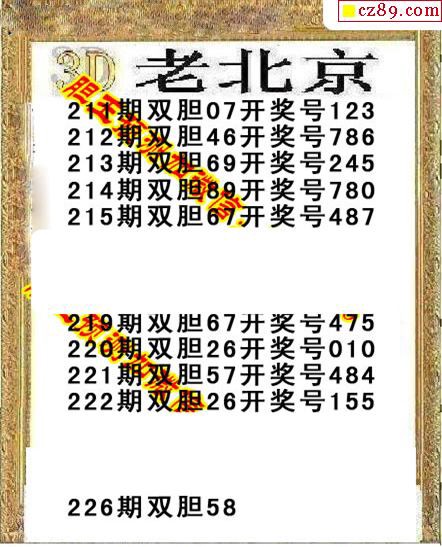 cz89.com
3D 老北京
211期双胆07开奖号123
212期双胆46开奖号786
213期双胆69开奖号245
214期双胆89开奖号780
215期双胆67开奖号487
219期双胆67开奖号475
220期双胆26开奖号010
221期双胆57开奖号484
222期双胆26开奖号155
226期双胆58